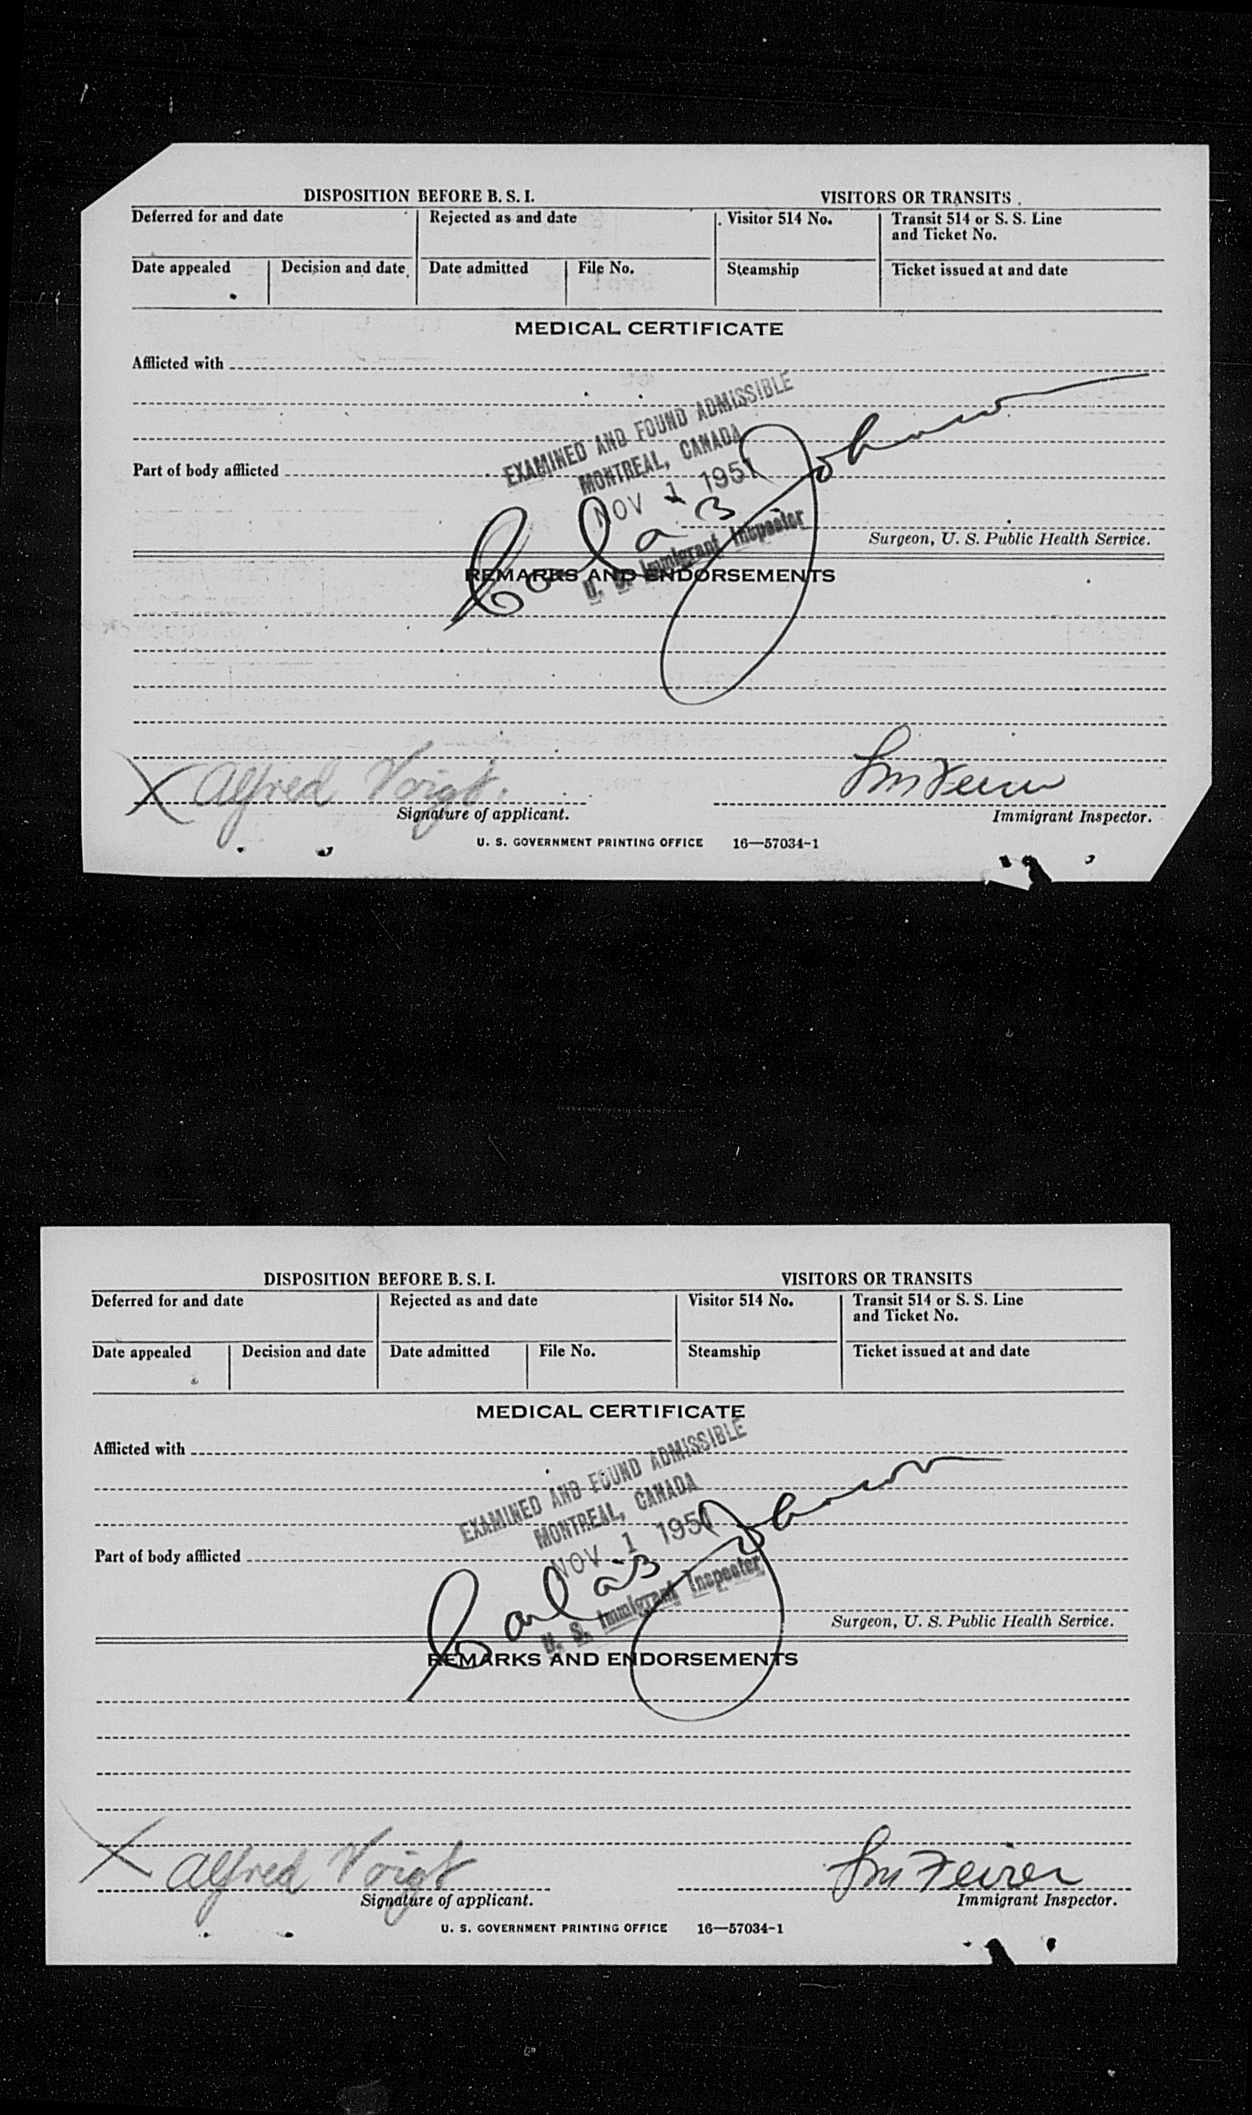 DISPOSITION BEFORE B. S. I. VISITORS OR TRANSITS
Deferred for and date Rejected as and date Visitor 514 No. Transit 514 or S. S. Line
and Ticket No.
Date appealed Decision and date Date admitted File No. Steamship Ticket issued at and date
MEDICAL CERTIFICATE
Afflicted with
EXAMINED AND FOUND ADMISSIBLE
MONTREAL, CANADA
Part of body afflicted
NOV 1 1951
Carl a B Johnson
U. S. Immigrant Inspector
Surgeon, U. S. Public Health Service.
REMARKS AND ENDORSEMENTS
X Alfred Voigt
Signature of applicant. Immigrant Inspector.
U. S. GOVERNMENT PRINTING OFFICE 16—57034-1
DISPOSITION BEFORE B. S. I. VISITORS OR TRANSITS
Deferred for and date Rejected as and date Visitor 514 No. Transit 514 or S. S. Line
and Ticket No.
Date appealed Decision and date Date admitted File No. Steamship Ticket issued at and date
MEDICAL CERTIFICATE
Afflicted with
EXAMINED AND FOUND ADMISSIBLE
MONTREAL, CANADA
Part of body afflicted
NOV 1 1951
Carl a B Johnson
U. S. Immigrant Inspector
Surgeon, U. S. Public Health Service.
REMARKS AND ENDORSEMENTS
X Alfred Voigt
Signature of applicant. Immigrant Inspector.
U. S. GOVERNMENT PRINTING OFFICE 16—57034-1